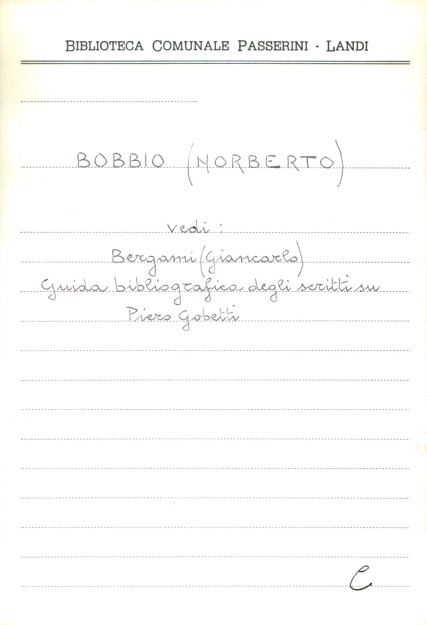 BIBLIOTECA COMUNALE PASSERINI - LANDI
BOBBIO (NORBERTO)
vedi :
Bergami (Giancarlo)
Guida bibliografica degli scritti su
Piero Gobetti
C